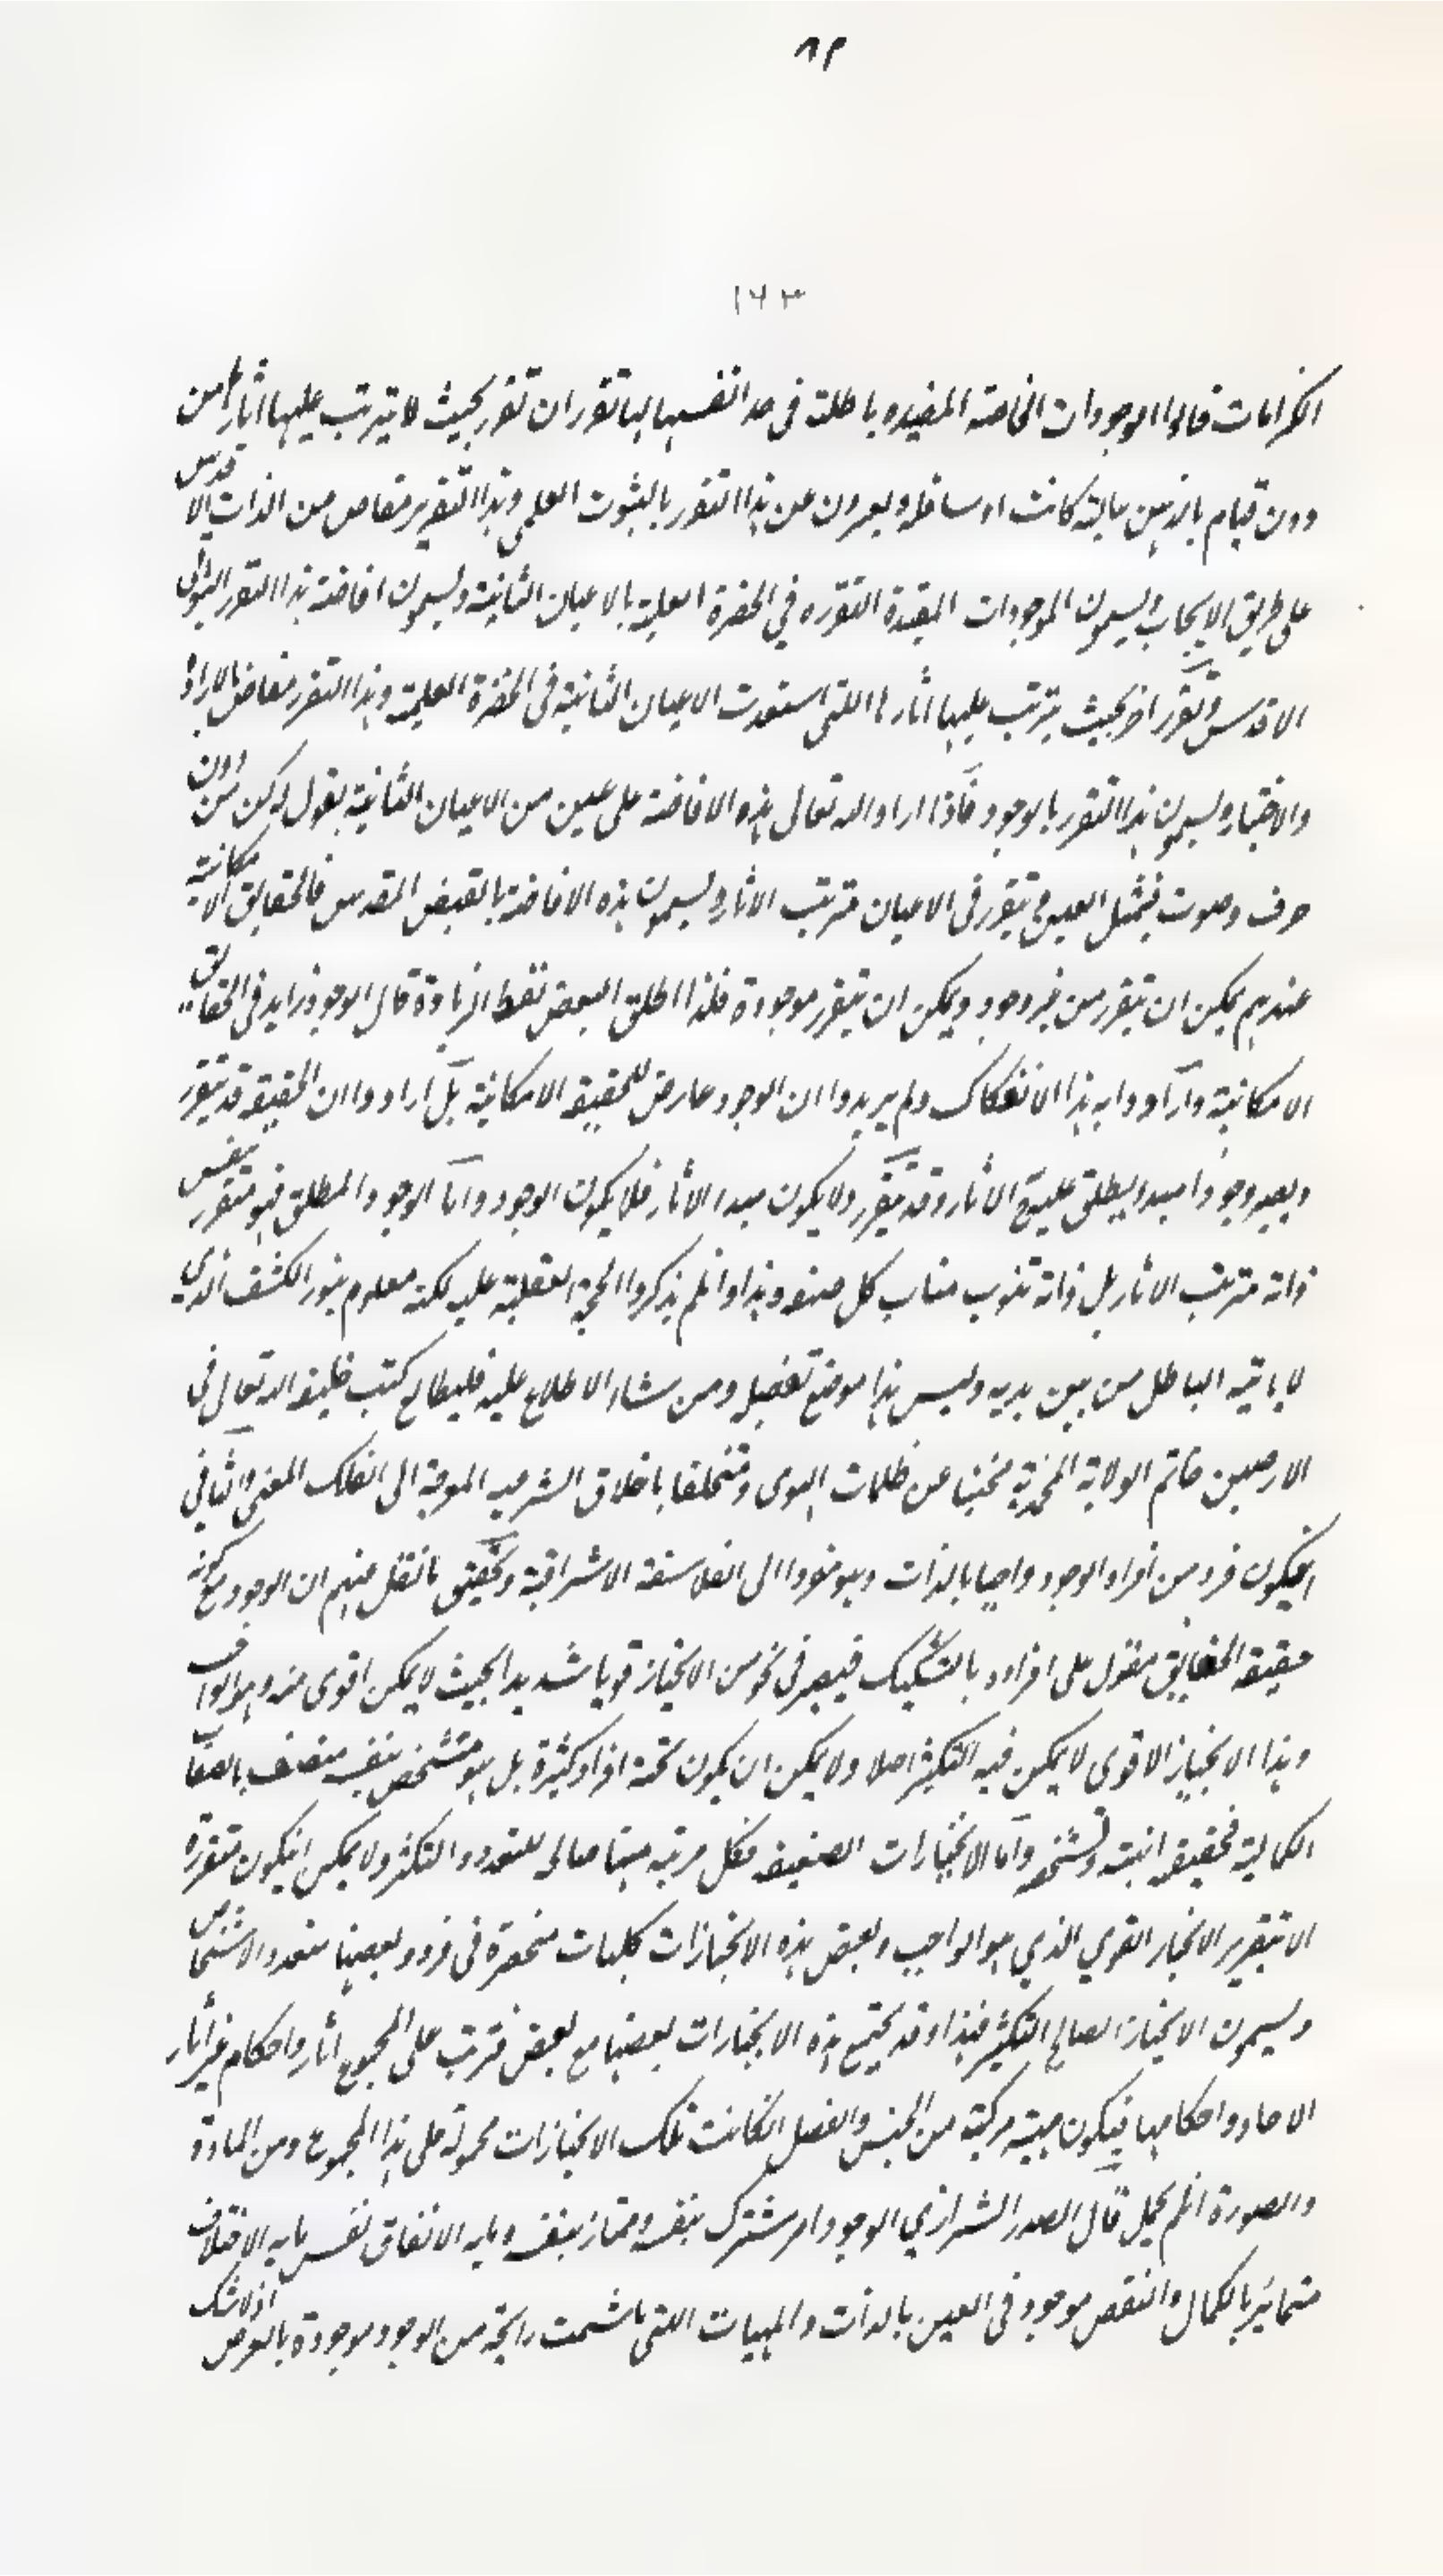 ٨٢
١٦٣
الكرامات قالوا الوجودات الخاصة المقيده باطلة فى حد انفسها لها تقرران تقرر بحيث لا يترتب عليها اثارها من
دون قيام بالذهن عالية كانت او سافلة ويعبرون عن هذا التقرر بالثبوت العلمى وهذا التقرير مفاض من الذات الاقدس
على طريق الايجاب ويسمون الموجودات المقيدة المتقرره في الحضرة العلمية بالاعيان الثابتة ويسمون افاضة هذا التقرر الفيض
الاقدس وتقرر اخر بحيث يترتب عليها اثارها اللتى استعدت الاعيان الثابتة فى الحضرة العلمية وهذا التقرر مفاض بالارادة
والاختيار ويسمون هذا التقرر بالوجود فاذا اراد الله تعالى هذه الافاضة على عين من الاعيان الثابتة يقول له كن من دون
حرف وصوت فيمثل العين فيتقرر فى الاعيان مترتب الاثار ويسمون هذه الافاضة بالفيض المقدس فالحقايق الامكانية
عندهم يمكن ان يتقرر من غير وجود ويمكن ان يتقرر موجودة فلذا اطلق البعض لفظ الزيادة قال الوجود زايد فى الحقايق
الامكانية وارادوا به هذا الانفكاك ولم يريدوا ان الوجود عارض للحقيقة الامكانية بل ارادوا ان الحقيقة قد يتقرر
ويصير وجودا مبدا ينطلق عليه الاثار وقد يتقرر ولا يكون مبدا الاثار فلا يكون الوجود واما الوجود المطلق فهو متقرر بنفس
ذاته مترتب الاثار بل ذاته تنوب مناب كل صفة وهذا وان لم يذكروا الحجة العقلية عليه لكنه معلوم بنور الكشف الذي
لا ياتيه الباطل من بين يديه وليس هذا موضع تفصيله ومن شاء الاطلاع عليه فليطالع كتب خليفة الله تعالى فى
الارضين خاتم الولاية المحمدية مجتنبا عن ظلمات الهوى ومتخلقا باخلاق الشرعيه الموجبة الى الفلك المعنى والثانى
ان يكون فرد من افراد الوجود واجبا بالذات وهو معزوا الى الفلاسفة الاشراقية وتحقيق ما نقل عنهم ان الوجود مع كونه
حقيقة الحقايق مقول على افراده بالتشكيك فيصير فى نحو من الانحياز قويا شديدا بحيث لا يمكن اقوى منه وهو الواجب
وهذا الانحياز الاقوى لا يمكن فيه التكثر اصلا ولا يمكن ان يكون تحته افراد كثيرة بل هو متشخص بنفسه متصف بالصفات
الكمالية فحقيقة انيته وتشخصه واما الانحيازات الضعيفة فكل مرتبة منها صالح للتعدد والتكثر ولا يمكن ان يكون متقررة
الا بتقرير الانحياز القوي الذي هو الواجب وبعض هذه الانحيازات كليات منحصرة فى فرد وبعضها متعدد الاشخاص
ويسمون الانحياز الصالح التكثر فهذا وقد يجتمع هذه الانحيازات بعضها مع بعض فترتب على المجموع اثار واحكام غير اثار
الاحاد واحكامها فيكون مهية مركبة من الجنس والفصل ان كانت تلك الانحيازات محمولة على هذا المجموع ومن المادة
والصورة ان لم يحمل قال الصدر الشيرازي الوجود امر مشترك بنفسه وممتاز بنفسه وما به الاتفاق نفس ما به الاختلاف
متمايز بالكمال والنقص موجود فى العين بالذات والمهيات اللتى ما شمت رايحة من الوجود موجودة بالعرض اذ لا شك